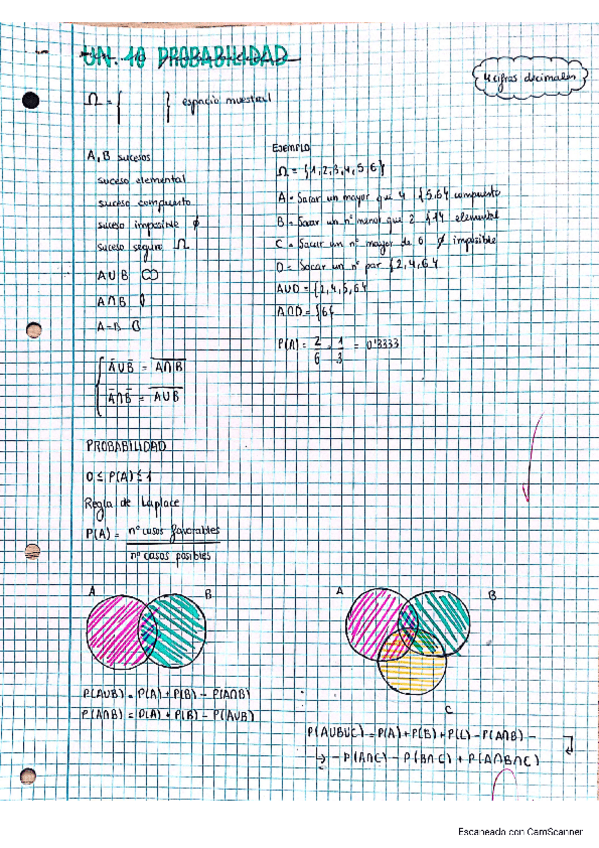 UN. 10 PROBABILIDAD
4 cifras decimales
Ω = { } espacio muestral
A, B sucesos
suceso elemental
suceso compuesto
suceso imposible ∅
suceso seguro Ω
A∪B
A∩B
A-B
A̅∪B̅ = \overline{A∩B}
A̅∩B̅ = \overline{A∪B}
Ejemplo
Ω = {1,2,3,4,5,6}
A = Sacar un mayor que 4 {5,6} compuesto
B = Sacar un nº menor que 2 {1} elemental
C = Sacar un nº mayor de 6 ∅ imposible
D = Sacar un nº par {2,4,6}
A∪D = {2,4,5,6}
A∩D = {6}
P(A) = 2/6 = 1/3 = 0'3333
PROBABILIDAD
0 ≤ P(A) ≤ 1
Regla de Laplace
P(A) = nº casos favorables
nº casos posibles
A B
P(A∪B) = P(A) + P(B) - P(A∩B)
P(A∩B) = P(A) + P(B) - P(A∪B)
A B
C
P(A∪B∪C) = P(A) + P(B) + P(C) - P(A∩B) -
- P(A∩C) - P(B∩C) + P(A∩B∩C)
Escaneado con CamScanner